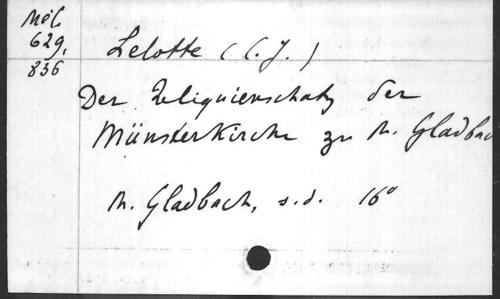 Mél
629,
836
Lelotte (C. J.)
Der Reliquienschatz der
Münsterkirche zu M. Gladbac
M. Gladbach, s.d. 16°